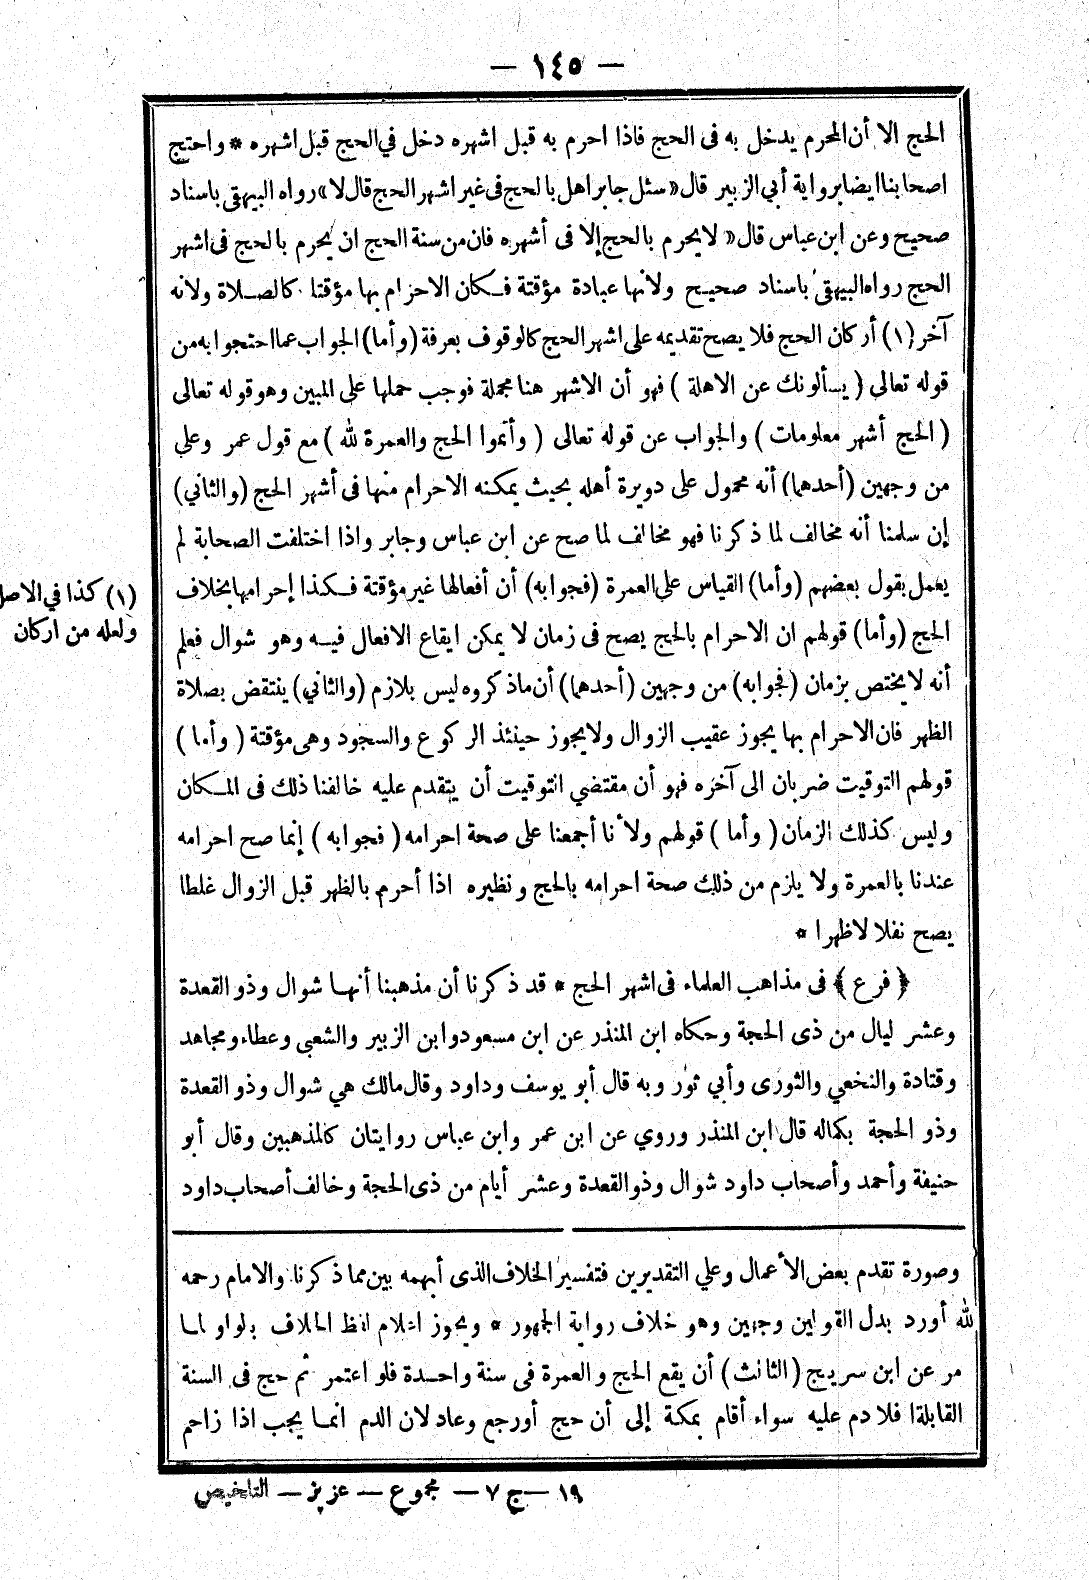 — ١٤٥ —
الحج الا أن المحرم يدخل به فى الحج فاذا احرم به قبل اشهره دخل في الحج قبل اشهره * واحتج
اصحابنا ايضا برواية أبي الزبير قال « سئل جابر اهل بالحج فى غير اشهر الحج قال لا » رواه البيهقى باسناد
صحيح وعن ابن عباس قال « لا يحرم بالحج إلا فى أشهره فان من سنة الحج ان يحرم بالحج فى اشهر
الحج رواه البيهقى باسناد صحيح ولانها عبادة مؤقتة فكان الاحرام بها مؤقتا كالصلاة ولانه
آخر (١) أركان الحج فلا يصح تقديمه على اشهر الحج كالوقوف بعرفة (وأما) الجواب عما احتجوا به من
قوله تعالى ( يسألونك عن الاهلة ) فهو أن الاشهر هنا مجملة فوجب حملها على المبين وهو قوله تعالى
( الحج أشهر معلومات ) والجواب عن قوله تعالى ( وأتموا الحج والعمرة لله ) مع قول عمر وعلي
من وجهين (أحدهما) أنه محمول على دويرة أهله بحيث يمكنه الاحرام منها فى أشهر الحج (والثاني)
إن سلمنا أنه مخالف لما ذكرنا فهو مخالف لما صح عن ابن عباس وجابر واذا اختلفت الصحابة لم
يعمل بقول بعضهم (وأما) القياس على العمرة (فجوابه) أن أفعالها غير مؤقتة فكذا إحرامها بخلاف
الحج (وأما) قولهم ان الاحرام بالحج يصح فى زمان لا يمكن ايقاع الافعال فيه وهو شوال فعلم
أنه لا يختص بزمان (فجوابه) من وجهين (أحدهما) أن ماذكروه ليس بلازم (والثاني) ينتقض بصلاة
الظهر فان الاحرام بها يجوز عقيب الزوال ولا يجوز حينئذ الركوع والسجود وهى مؤقتة ( وأما )
قولهم التوقيت ضربان الى آخره فهو أن مقتضي التوقيت أن يتقدم عليه خالفنا ذلك فى المكان
وليس كذلك الزمان ( وأما ) قولهم ولأنا أجمعنا على صحة احرامه ( فجوابه ) إنما صح احرامه
عندنا بالعمرة ولا يلزم من ذلك صحة احرامه بالحج ونظيره اذا أحرم بالظهر قبل الزوال غلطا
يصح نفلا لا ظهرا *
﴿ فرع ﴾ فى مذاهب العلماء فى اشهر الحج * قد ذكرنا أن مذهبنا أنها شوال وذو القعدة
وعشر ليال من ذى الحجة وحكاه ابن المنذر عن ابن مسعود وابن الزبير والشعبي وعطاء ومجاهد
وقتادة والنخعي والثورى وأبي ثور وبه قال أبو يوسف وداود وقال مالك هي شوال وذو القعدة
وذو الحجة بكماله قال ابن المنذر وروي عن ابن عمر وابن عباس روايتان كالمذهبين وقال أبو
حنيفة وأحمد وأصحاب داود شوال وذو القعدة وعشر أيام من ذى الحجة وخالف أصحاب داود
(١) كذا في الاصل
ولعله من اركان
وصورة تقدم بعض الأعمال وعلي التقديرين فتفسير الخلاف الذى أبهمه بين مما ذكرنا والامام رحمه
لله أورد بدل القولين وجهين وهو خلاف رواية الجمهور * ويجوز اعلام لفظ الخلاف بالواو لما
مر عن ابن سريج (الثالث) أن يقع الحج والعمرة فى سنة واحدة فلو اعتمر ثم حج فى السنة
القابلة فلا دم عليه سواء أقام بمكة إلى أن حج أو رجع وعاد لان الدم انما يجب اذا زاحم
١٩ — ج ٧ — مجموع — عزيز — التلخيص